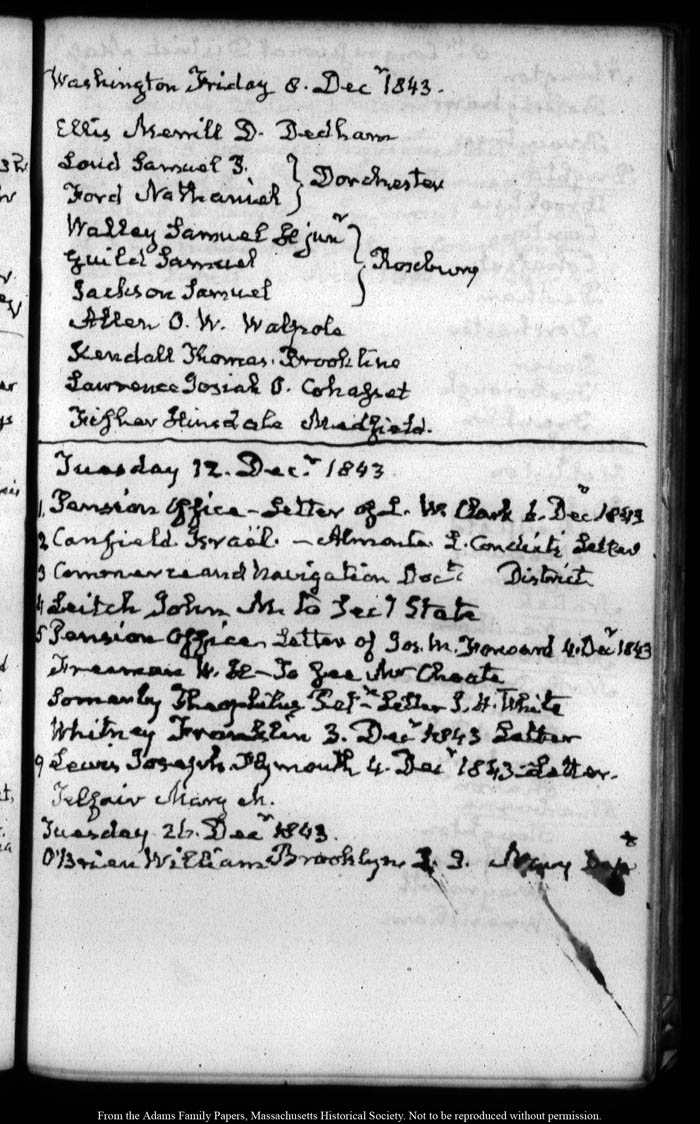 Washington Friday 8. Decr 1843.
Ellis Merrill D. Dedham
Loud Samuel P. } Dorchester
Ford Nathaniel
Walley Samuel H junr
Guild Samuel } Roxbury
Jackson Samuel
Allen O. W. Walpole
Kendall Thomas. Brookline
Lawrence Josiah O. Cohasset
Fisher Hinsdale Medfield.
Tuesday 12. Decr 1843
1. Pension Office - Letter of L. W. Clark 6. Dec 1843
2 Canfield Israël. - Almonta. L. Condict's Letter
3 Commerce and Navigation Docts District
4 Leitch John M. to Secy State
5 Pension Office Letter of Jos. M. Forward 4. Decr 1843
Freeman W. H - To see Mr Choate
Somerby Theophilus Petn Letter J. H. White
Whitney Franklin 3. Decr 1843 Letter
9 Lewis Joseph. Plymouth 4. Decr 1843 - Letter.
Telfair Mary M.
Tuesday 26. Decr 1843.
O'Brien William Brooklyn L. I. Navy
From the Adams Family Papers, Massachusetts Historical Society. Not to be reproduced without permission.